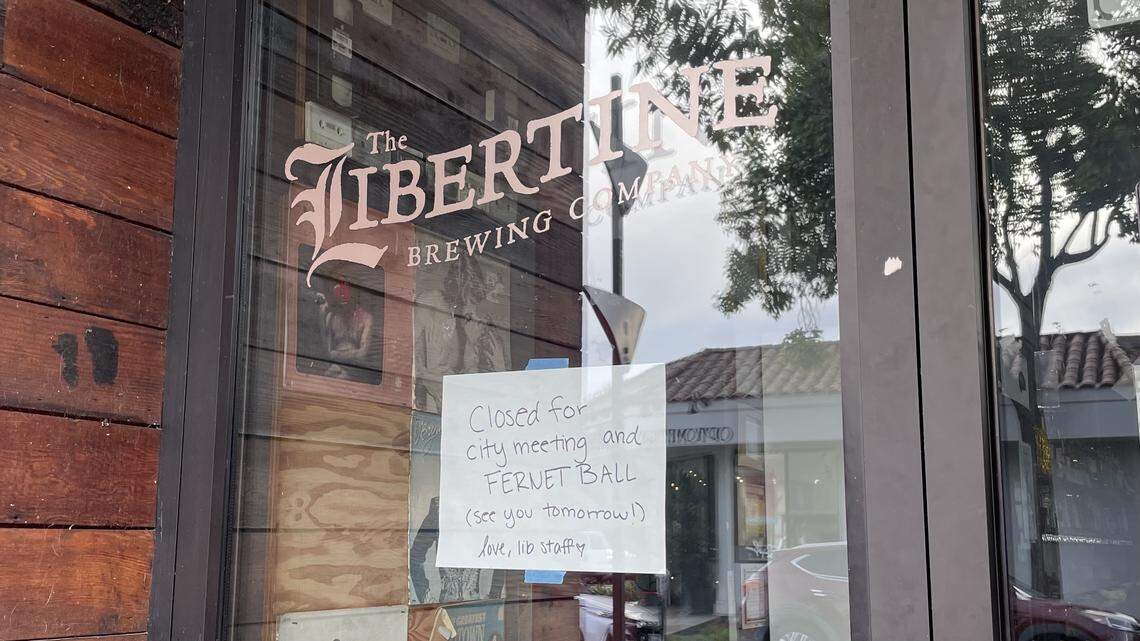 The
LIBERTINE
BREWING COMPANY
Closed for
city meeting and
FERNET BALL
(see you tomorrow!)
love, lib staffy